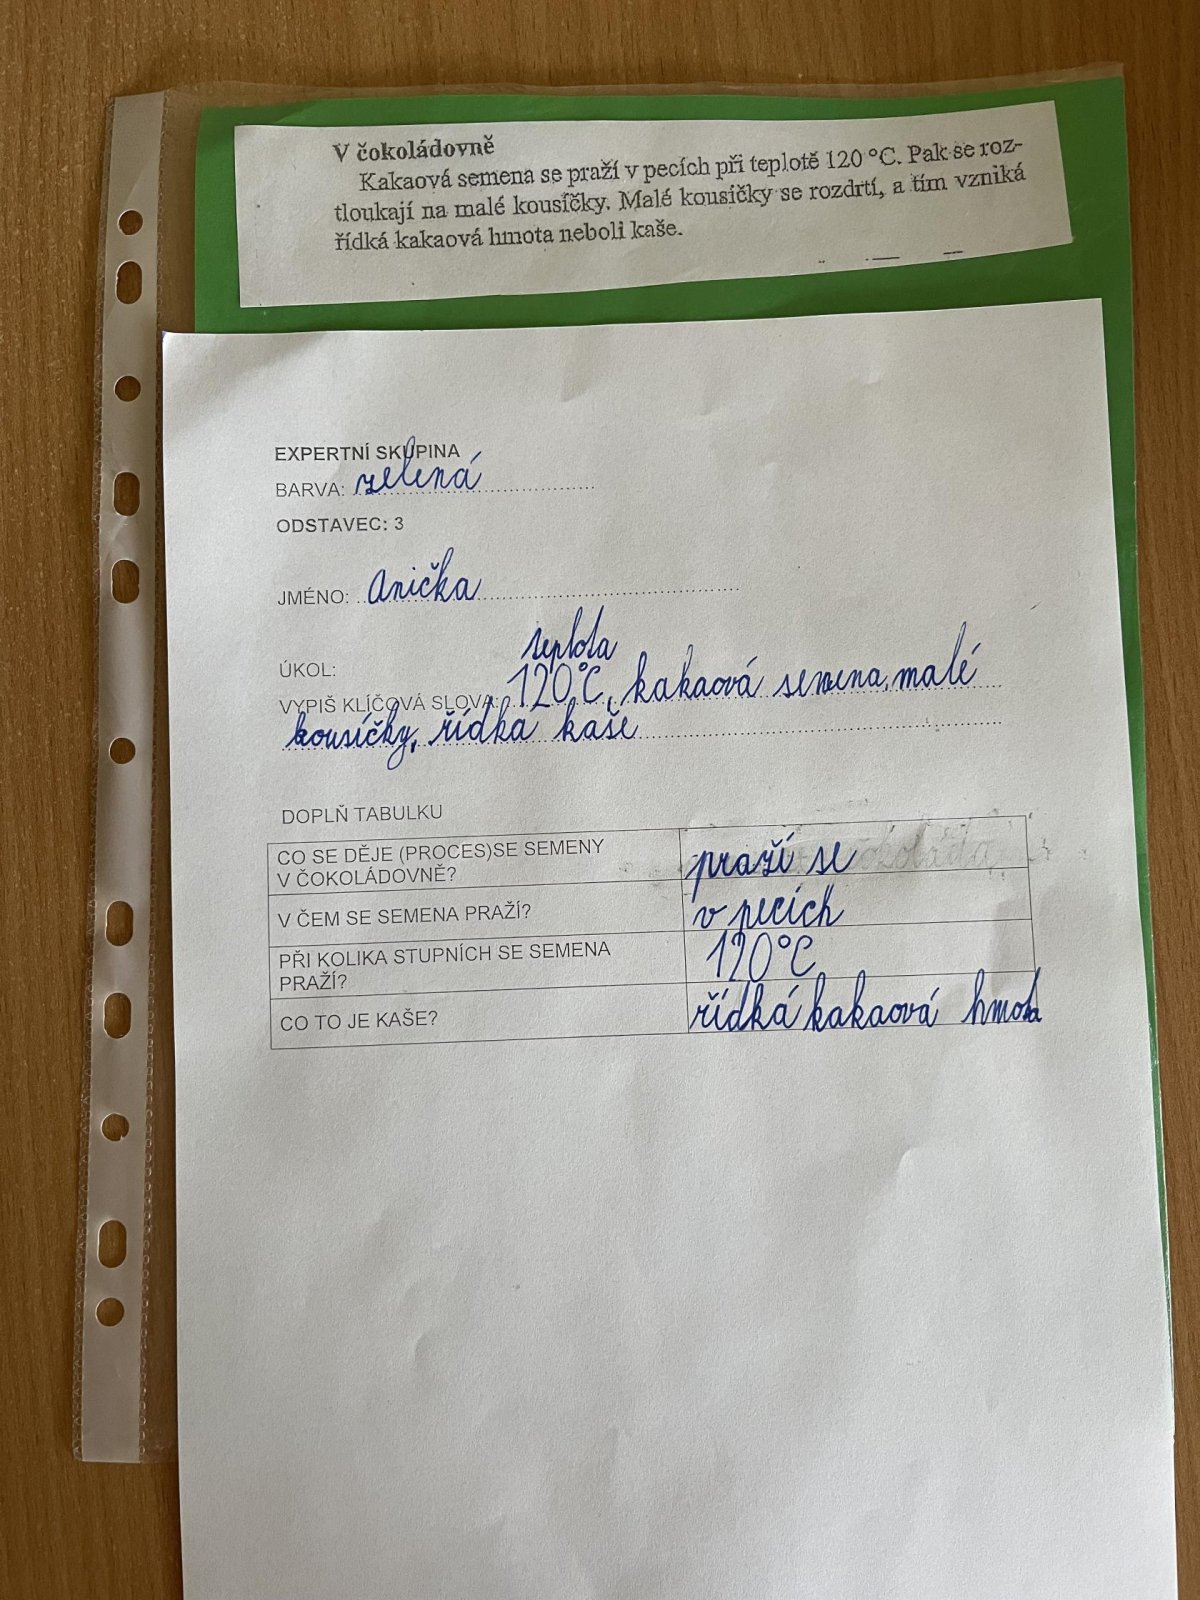 V čokoládovně
Kakaová semena se praží v pecích při teplotě 120 °C. Pak se roz-
tloukají na malé kousíčky. Malé kousíčky se rozdrtí, a tím vzniká
řídká kakaová hmota neboli kaše.
EXPERTNÍ SKUPINA
BARVA: zelená
ODSTAVEC: 3
JMÉNO: Anička
teplota
ÚKOL:
VYPIŠ KLÍČOVÁ SLOVA: 120°C, kakaová semena, malé
kousíčky, řídka kaše
DOPLŇ TABULKU
CO SE DĚJE (PROCES)SE SEMENY
V ČOKOLÁDOVNĚ?
praží se
V ČEM SE SEMENA PRAŽÍ? v pecích
PŘI KOLIKA STUPNÍCH SE SEMENA
PRAŽÍ?
120°C
CO TO JE KAŠE? řídká kakaová hmota